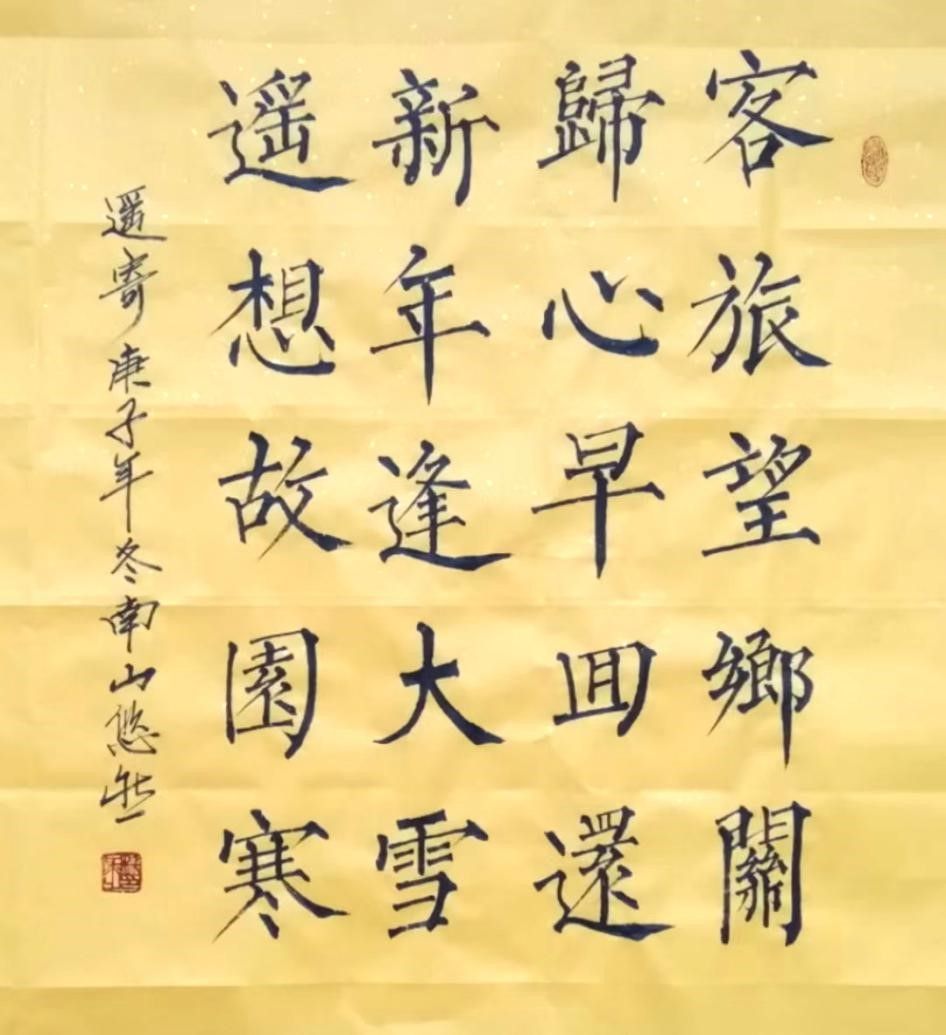 客旅望鄉關
歸心早囬還
新年逢大雪
遥想故園寒
遥寄庚子年冬南山悠然